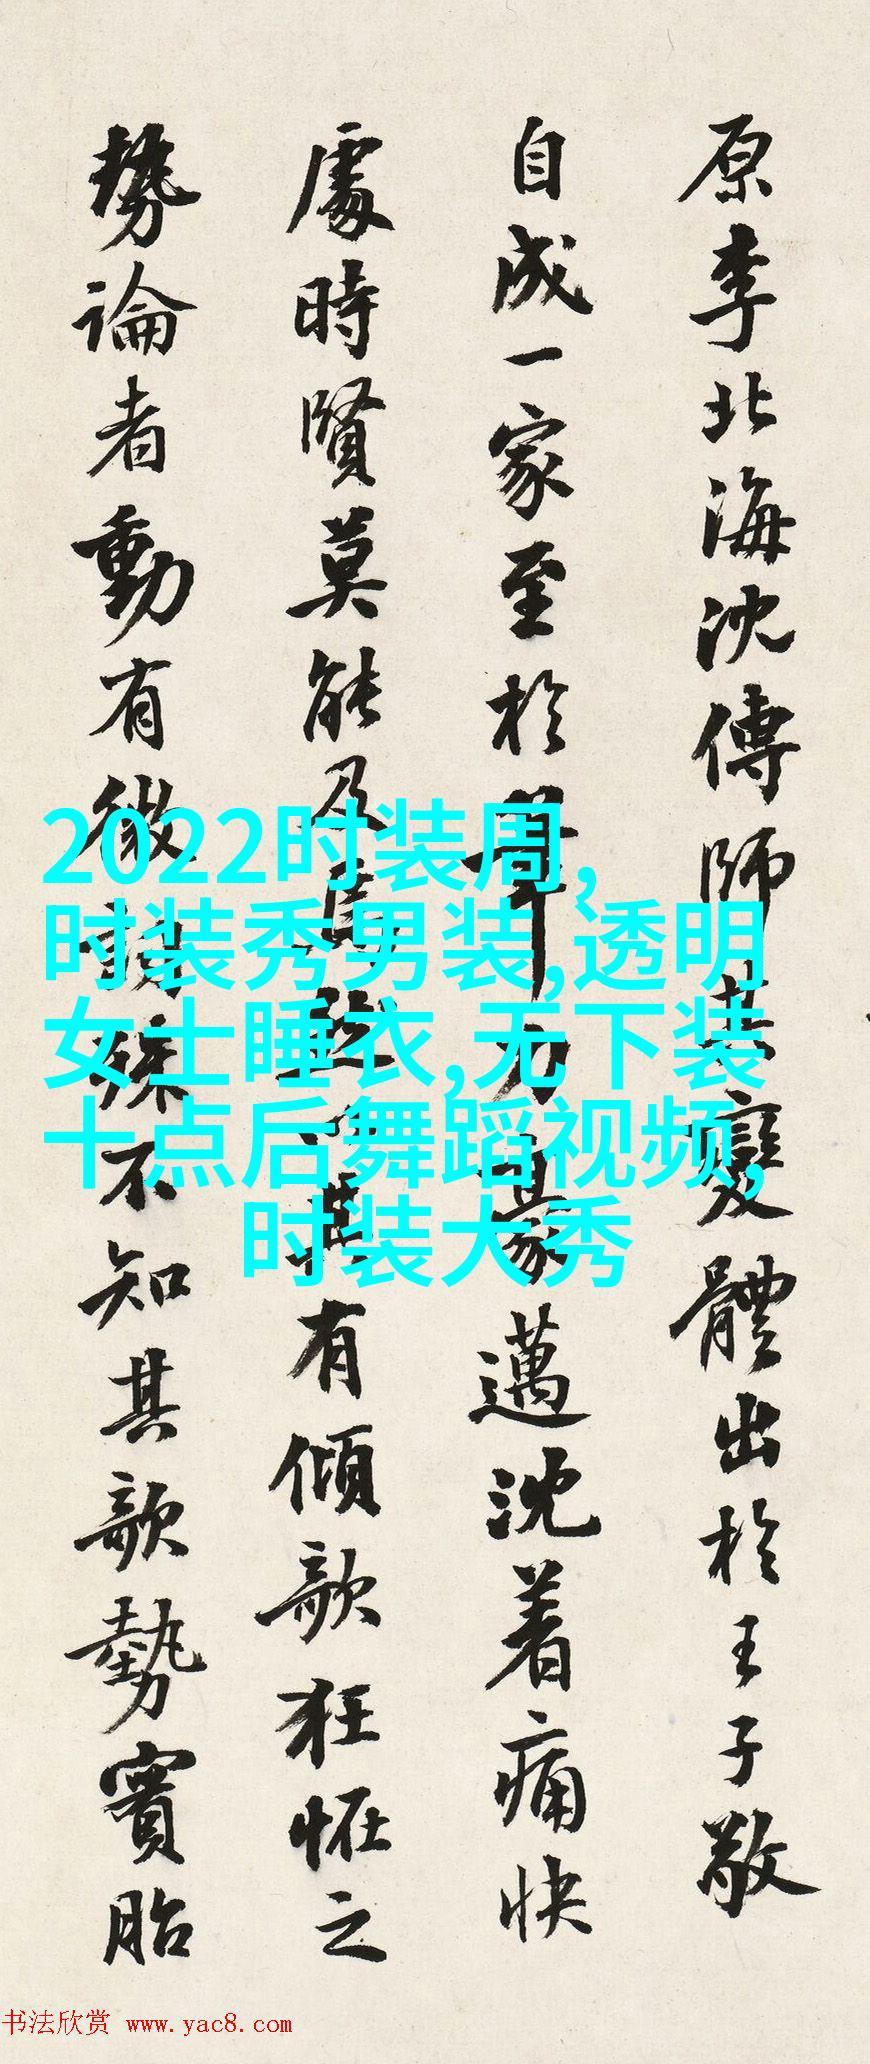 原李北海沈傳師其變體出於王子敬
自成一家至於筆力豪邁沈着痛快
處時賢莫能及焉其有傾欹狂怪之
勢論者動有微殊不知其欹勢實胎
2022时装周,
时装秀男装,透明
女士睡衣,无下装
十点后舞蹈视频,
时装大秀
书法欣赏 www.yac8.com